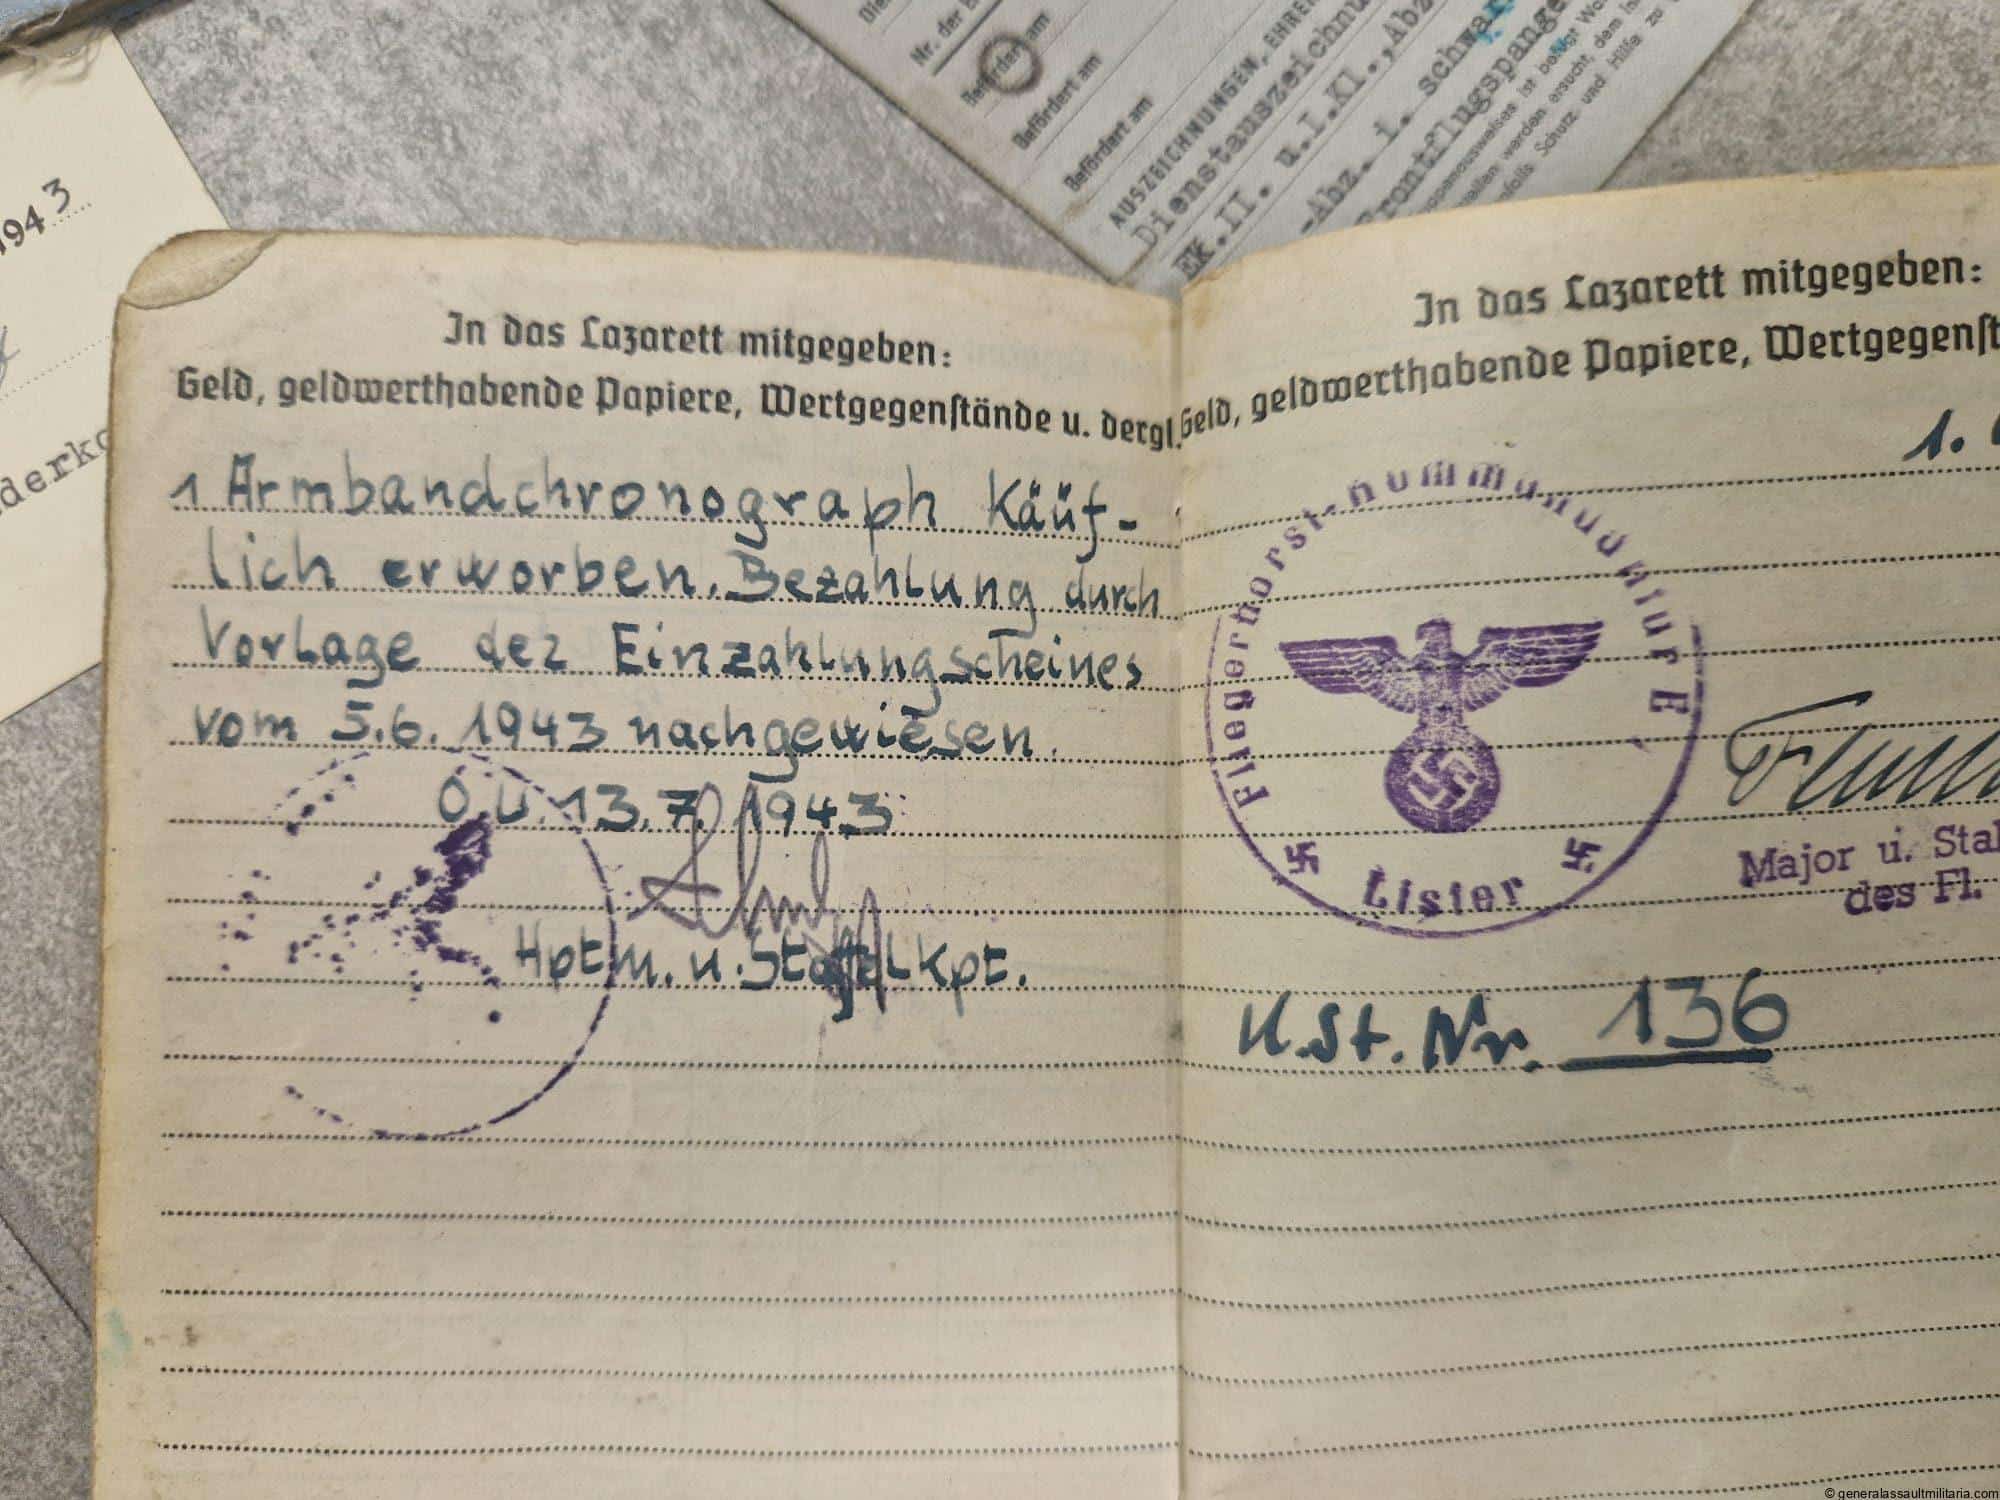 Nr. der E
Befördert am
Befördert am
Befördert am
AUSZEICHNUNGEN, EHREN
Dienstauszeichnu
EK.II. u.I.Kl., Abz
-Abz. i. schwar
Frontflugspange
ausweises ist befugt
werden ersucht, dem In
Schutz und Hilfe zu
1943
derko
In das Lazarett mitgegeben:
Geld, geldwerthabende Papiere, Wertgegenstände u. dergl.
1 Armbandchronograph Käuf-
lich erworben. Bezahlung durch
Vorlage des Einzahlungscheines
vom 5.6.1943 nachgewiesen.
O.U. 13.7.1943
Hptm. u. Staffelkpt.
In das Lazarett mitgegeben:
Geld, geldwerthabende Papiere, Wertgegenst
1.
Fliegerhorst-Kommandantur E
Lister
Major u. Sta
des Fl.
K.St.Nr. 136
© generalassaultmilitaria.com